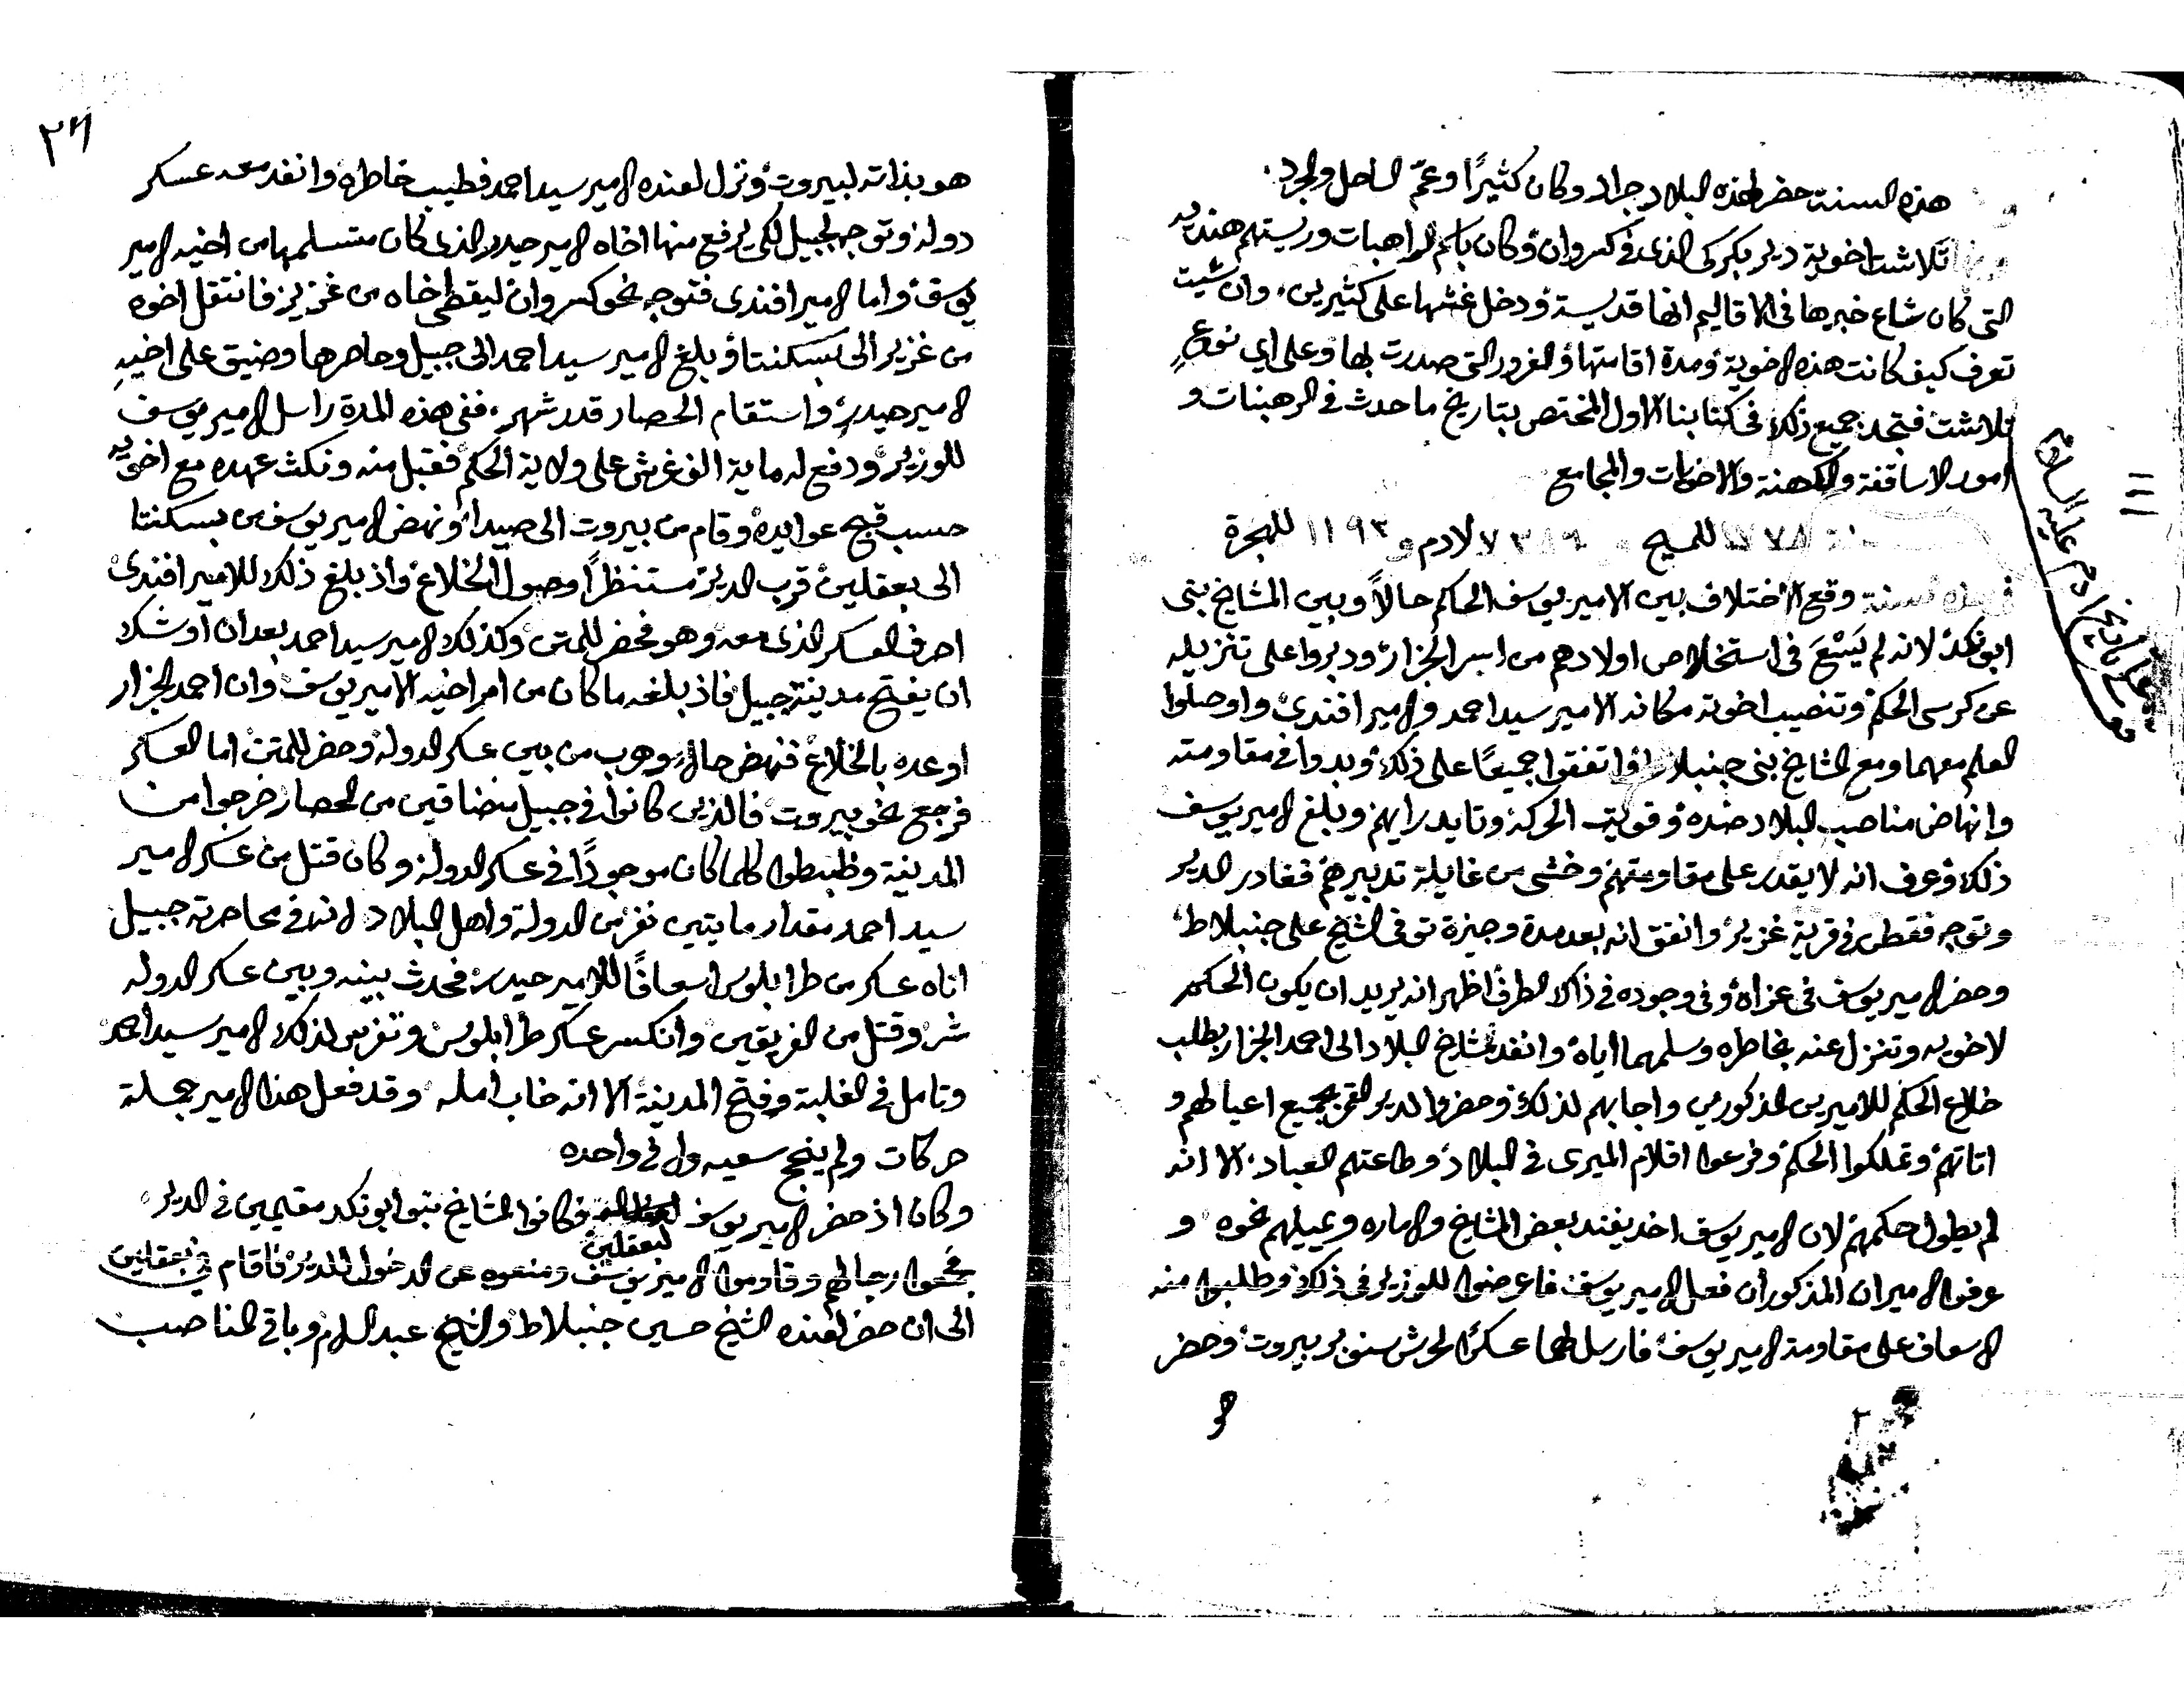 هذه السنة حضر لهذه البلاد جراد وكان كثيرًا وعمّ الساحل والجرد.
تلاشت اخوية دير بكركى الذى فى كسروان وكان باسم الراهبات وريستهم هندية
التى كان شاع خبرها فى الاقاليم انها قديسة ودخل غشها على كثيرين، وان شيت
تعرف كيف كانت هذه الاخوية ومدة اقامتها والغرور التى صدرت بها وعلى اي نوعٍ
تلاشت فتجد جميع ذلك فى كتابنا الاول المختص بتاريخ ما حدث فى الرهبنات و
امور الاساقفة والكهنة والاخويات والمجامع
للمسيح لادم و ١١٩٣ للهجرة
وقع الاختلاف بين الامير يوسف الحاكم حالاً وبين المشايخ بنى
ابو نكد لانه لم يَسْعَ فى استخلاص اولادهم من اسر الجزار ودبروا على تنزيله
عن كرسى الحكم وتنصيب اخوته مكانه الامير سيد احمد والامير افندى واوصلوا
العلم معهما ومع المشايخ بنى جنبلاط واتفقوا جميعًا على ذلك وبدوا فى مقاومته
وانهاض مناصب البلاد ضده وقويت الحركة وتايد رايهم وبلغ الامير يوسف
ذلك وعرف انه لا يقدر على مقاومتهم وخشى من غايلة تدبيرهم فغادر الدير
وتوجه فقطن فى قرية غزير واتفق انه بعد مدة وجيزة توفى الشيخ على جنبلاط
وحضر الامير يوسف فى عزاه وفى وجوده فى ذاك الطرف اظهر انه يريد ان يكون الحكم
لاخويه وتنزل عنه بخاطره وسلمهما اياه وانفد مشايخ البلاد الى احمد الجزار بطلب
خلاع الحكم للاميرين المذكورين واجابهم لذلك وحضروا لدير القمر بجميع اعيالهم و
اتاتهم وتملكوا الحكم وفرعوا اقلام الميرى فى البلاد وطاعتهم العباد، الا انه
لم يطول حكمهم لان الامير يوسف اخد يفند بعض المشايخ والاماره ويميلهم نحوه و
عرفوا الاميران المذكوران فعل الامير يوسف فاعرضوا للوزير فى ذلك وطلبوا منه
الاسعاف على مقاومة الامير يوسف فارسل لهما عسكرًا لحرش سنوبر بيروت وحضر
هو
تاريخ ادم عليه السلام
٢٦
هو بذاته لبيروت ونزل لعنده الامير سيد احمد فطيب خاطره وانفد معه عسكر
دولة وتوجه لجبيل لكى يرفع منها اخاه الامير حيدر الذى كان متسلمها من اخيه الامير
يوسف واما الامير افندى فتوجه نحو كسروان ليقط اخاه من غزير فانتقل اخوه
من غزير الى بسكنتا وبلغ الامير سيد احمد الى جبيل وحاصرها وضيق على اخيهِ
الامير حيدر واستقام الحصار قدر شهر، ففى هذه المدة راسل الامير يوسف
للوزير ودفع له ماية الف غرش على ولاية الحكم فقبل منه ونكث عهده مع اخويه
حسب قبيح عوايده وقام من بيروت الى صيدا ونهض الامير يوسف من بسكنتا
الى بعقلين قرب الدير مستنظرًا وصول الخلاع واذ بلغ ذلك للامير افندى
احرف العسكر الذى معه وهو فحضر للمتن وكذلك الامير سيد احمد بعد ان اوشك
ان يفتح مدينة جبيل فاذ بلغه ما كان من امر اخيه الامير يوسف وان احمد الجزار
اوعده بالخلاع فنهض حالاً وهرب من بين عسكر الدولة وحضر للمتن اما العسكر
فرجع نحو بيروت فالذين كانوا فى جبيل متضاقين من الحصار خرجوا من
المدينة وظبطوا كلما كان موجودًا فى عسكر الدولة وكان قتل من عسكر الامير
سيد احمد مقدار مايتين نفر من الدولة واهل البلاد لانه فى محاصرته جبيل
اتاه عسكر من طرابلوس اسعافًا للامير حيدر فحدث بينه وبين عسكر الدوله
شر وقتل من الفريقين وانكسر عسكر طرابلوس وتفرس لذلك الامير سيد احمد
وتامل فى الغلبة وفتح المدينة الا انه خاب امله وقد فعل هذا الامير جملة
حركات ولم ينجح سعيه ولا فى واحده
وكان اذ حضر الامير يوسف لبعقلين فكانوا المشايخ بنو ابو نكد مقيمين فى الدير
فجمعوا رجالهم وقاوموا الامير يوسف ومنعوه عن الدخول للدير فاقام فى بعقلين
الى ان حضر لعنده الشيخ حسين جنبلاط والشيخ عبد السلام وباقى المناصب